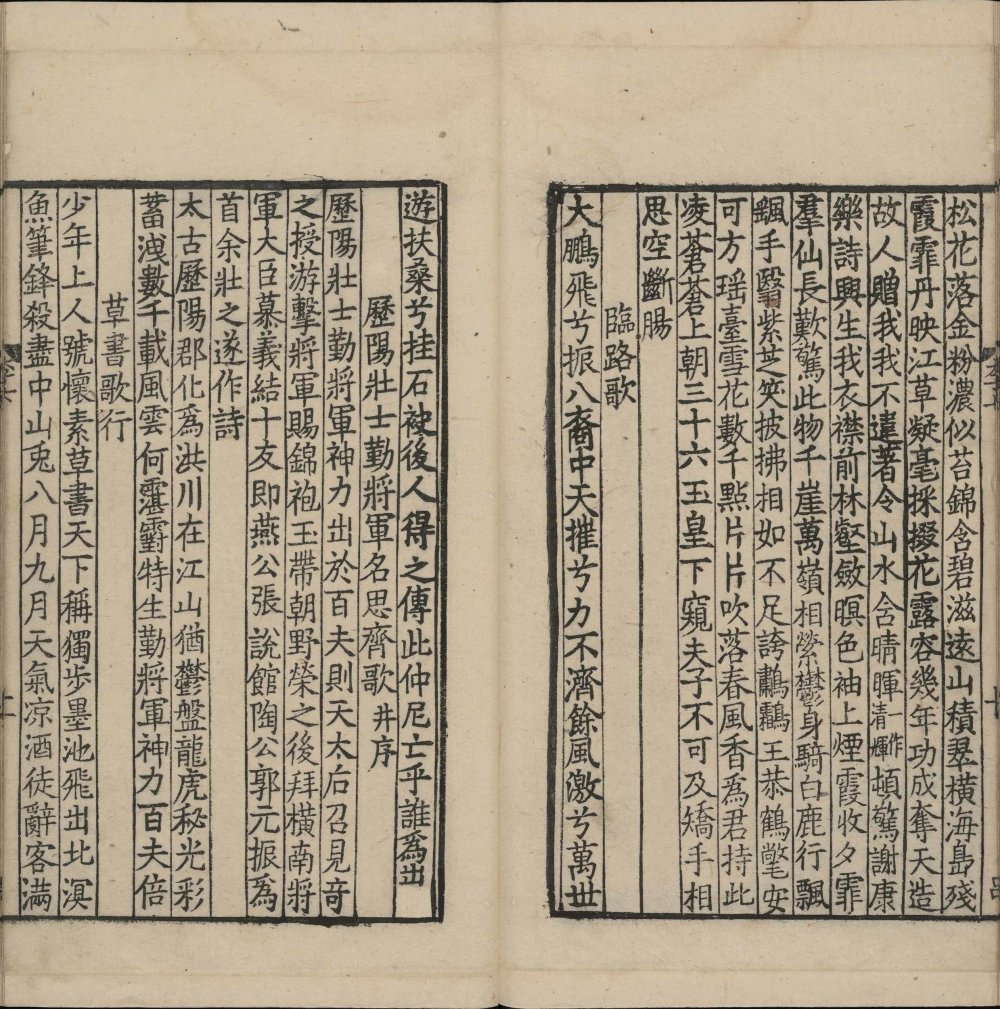 松花落金粉濃似苔錦含碧滋遠山積翠橫海島殘
霞霏丹映江草凝毫採掇花露容幾年功成奪天造
故人贈我我不違著令山水含晴暉一作清輝頓驚謝康
樂詩興生我衣襟前林壑斂暝色袖上煙霞收夕霏
羣仙長歎驚此物千崖萬嶺相縈鬱身騎白鹿行飄
颻手翳紫芝笑披拂相如不足誇鸘鸘王恭鶴氅安
可方瑶臺雪花數千點片片吹落春風香爲君持此
凌蒼蒼上朝三十六玉皇下窺夫子不可及矯手相
思空斷腸
臨路歌
大鵬飛兮振八裔中天摧兮力不濟餘風激兮萬世
遊扶桑兮挂石袂後人得之傳此仲尼亡乎誰爲出
歷陽壯士勤將軍名思齊歌 并序
歷陽壯士勤將軍神力出於百夫則天太后召見奇
之授游擊將軍賜錦袍玉帶朝野榮之後拜橫南將
軍大臣慕義結十友即燕公張説館陶公郭元振爲
首余壯之遂作詩
太古歷陽郡化爲洪川在江山猶鬱盤龍虎秘光彩
蓄洩數千載風雲何霮䨴特生勤將軍神力百夫倍
草書歌行
少年上人號懷素草書天下稱獨步墨池飛出北溟
魚筆鋒殺盡中山兎八月九月天氣凉酒徒辭客滿